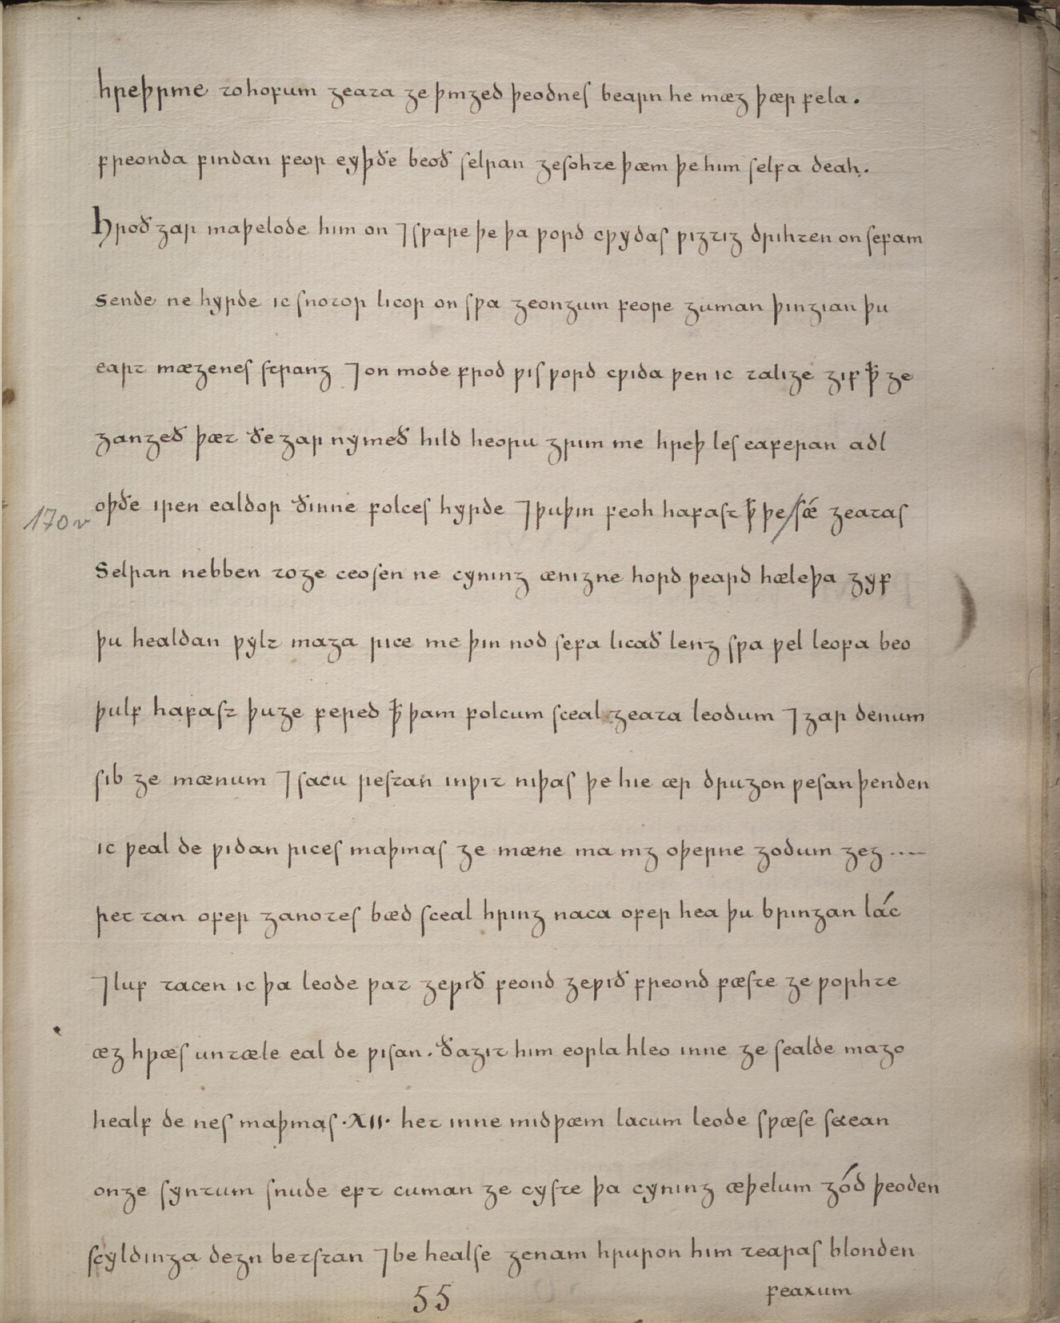 hreþrme tohofum geata ge þmged þeodnes bearn he mæg þær fela.
freonda findan feor eyþðe beoð selran gesohte þæm þe him selfa deah.
Hroð gar maþelode him on ⁊sƿare þe þa ƿord cƿydas ƿigtig drihten on sefam
sende ne hyrde ic snotor licor on sƿa geongum feore guman þingian þu
eart mægenes strang ⁊on mode frod ƿis ƿord cƿida ƿen ic talige gif ꝥ ge
gangeð þæt ðe gar nymeð hild heoru grim me hreþ les eaferan adl
170v oþðe iren ealdor ðinne folces hyrde ⁊þuþin feoh hafast ꝥ þe/sǽ geatas
Selran nebben toge ceosen ne cyning ænigne hord ƿeard hæleþa gyf
þu healdan ƿylt maga rice me þin nod sefa licað leng sƿa ƿel leofa beo
þulf hafast þuge fered ꝥ þam folcum sceal geata leodum ⁊gar denum
sib ge mænum ⁊sacu restan inƿit niþas þe hie ær drugon ƿesan þenden
ic ƿeal de ƿidan rices maþmas ge mæne ma mg oþerne godum geg ....
ret tan ofer ganotes bæd sceal hring naca ofer hea þu bringan lác
⁊luf tacen ic þa leode ƿat geƿið feond geƿið freond fæste ge ƿorhte
æg hƿæs untæle eal de ƿisan. ðagit him eorla hleo inne ge sealde mago
healf de nes maþmas .XII. het inne midþæm lacum leode sƿæse secean
onge syntum snude eft cuman ge cyste þa cyning æþelum gód þeoden
scyldinga degn betstan ⁊be healse genam hruron him tearas blonden
55 feaxum